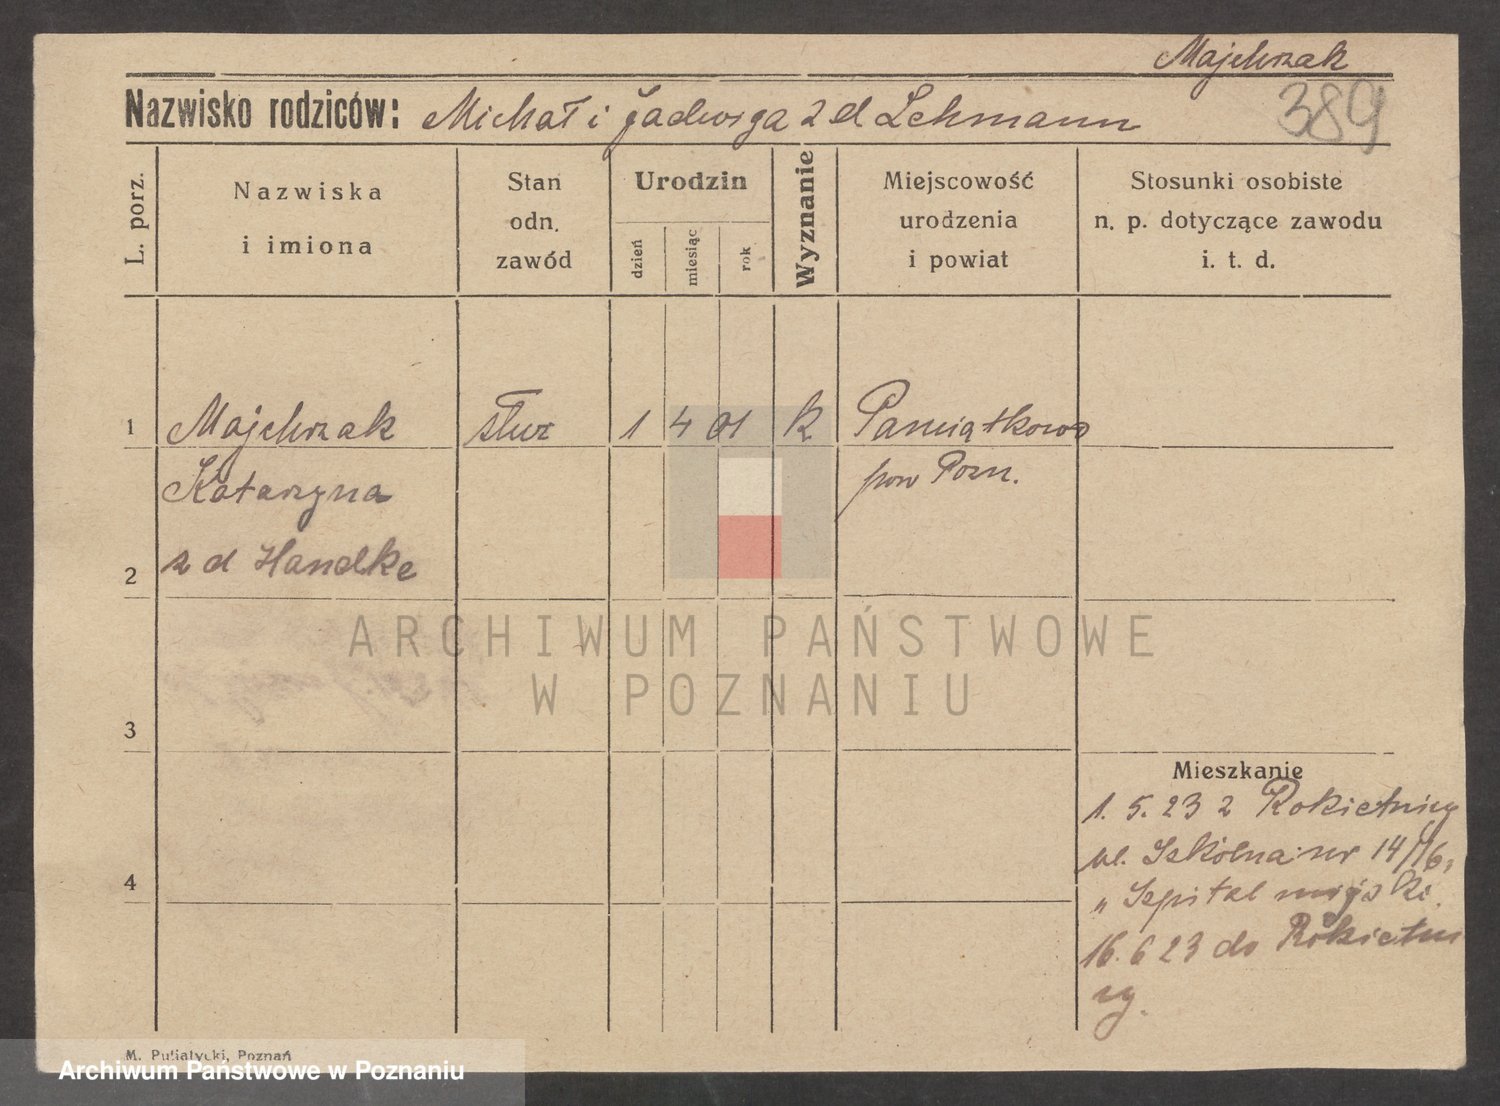 Majchrzak
Nazwisko rodziców: Michał i Jadwiga z d Lehmann
389
L. porz.
Nazwiska
i imiona
Stan
odn.
zawód
Urodzin
dzień
miesiąc
rok
Wyznanie
Miejscowość
urodzenia
i powiat
Stosunki osobiste
n. p. dotyczące zawodu
i. t. d.
1 Majchrzak służ 1 4 01 k Pamiątkowo
Katarzyna pow Pozn.
2 z d Handke
ARCHIWUM PAŃSTWOWE
W POZNANIU
3
Mieszkanie
1. 5. 23 z Rokietnicy
ul. Szkolna nr 14/16,
„ Szpital miejski.
4
16. 6 23 do Rokietni
cy.
M. Putiatycki, Poznań
Archiwum Państwowe w Poznaniu